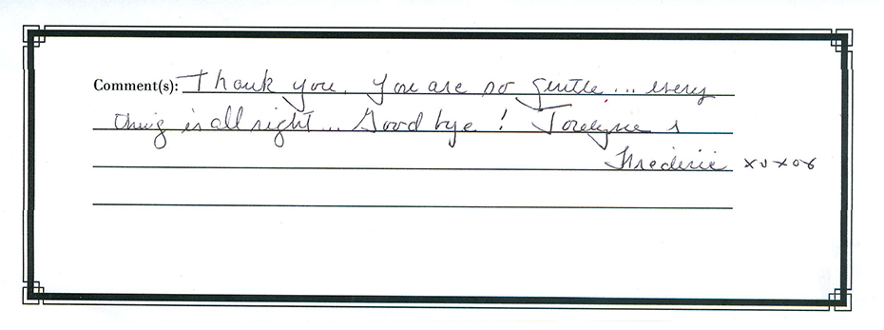 Comment(s): Thank you. You are so gentle... every
thing is all right... Good bye! Jocelyne &
Frederic xoxox